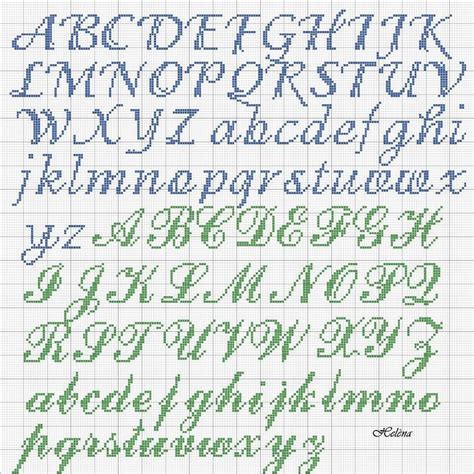 ABCDEFGHIJK
LMNOPQRSTUV
WXYZ abcdefghi
jklmnopqrstuvwx
yz ABCDEFGH
IJKLMNOPQ
RSTUVWXYZ
abcdefghijklmno
pqrstuvwxyz Heléna